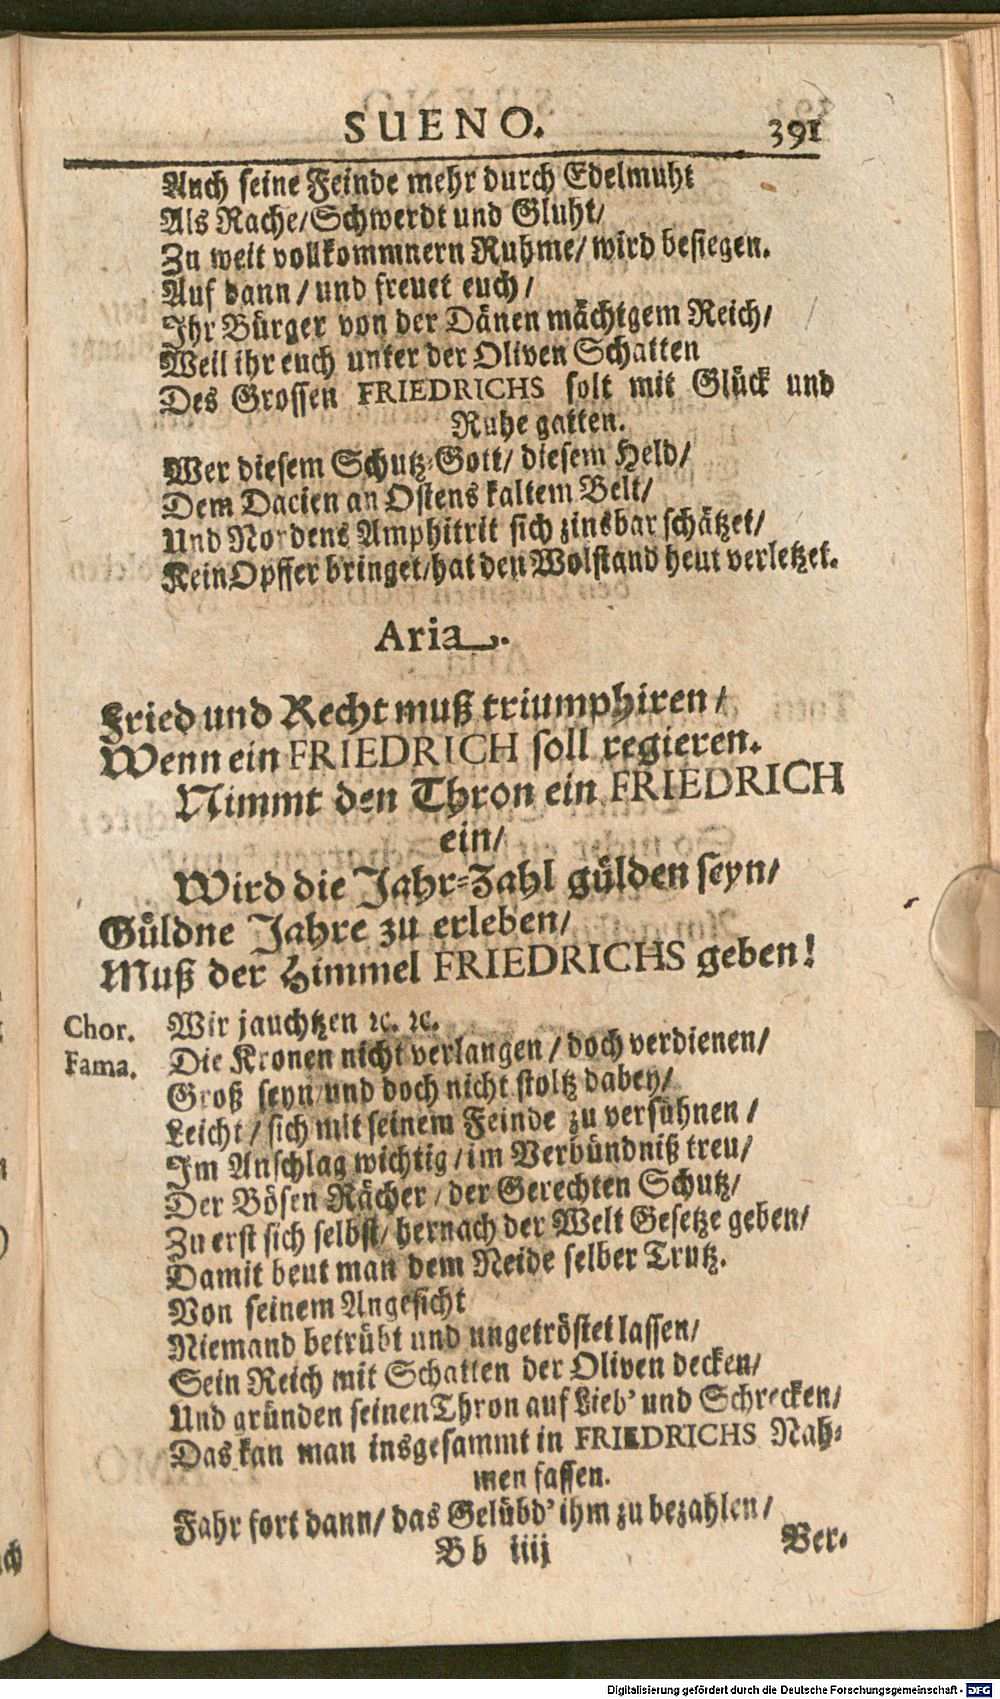 SUENO. 391
Auch seine Feinde mehr durch Edelmuht
Als Rache/Schwerdt und Gluht/
Zu weit vollkommnern Ruhme/ wird besiegen.
Auf dann/ und freuet euch/
Ihr Bürger von der Dänen mächtgem Reich/
Weil ihr euch unter der Oliven Schatten
Des Grossen FRIEDRICHS solt mit Glück und
Ruhe gatten.
Wer diesem Schutz-Gott/ diesem Held/
Dem Dacien an Ostens kaltem Belt/
Und Nordens Amphitrit sich zinsbar schätzet/
Kein Opffer bringet/hat den Wolstand heut verletzet.
Aria.
Fried und Recht muß triumphiren/
Wenn ein FRIEDRICH soll regieren.
Nimmt den Thron ein FRIEDRICH
ein/
Wird die Jahr-Zahl gülden seyn/
Güldne Jahre zu erleben/
Muß der Himmel FRIEDRICHS geben!
Chor. Wir jauchtzen ꝛc. ꝛc.
Fama. Die Kronen nicht verlangen/ doch verdienen/
Groß seyn/und doch nicht stoltz dabey/
Leicht/ sich mit seinem Feinde zu versühnen/
Im Anschlag wichtig/im Verbündniß treu/
Der Bösen Rächer/ der Gerechten Schutz/
Zu erst sich selbst/ hernach der Welt Gesetze geben/
Damit beut man dem Neide selber Trutz.
Von seinem Angesicht
Niemand betrübt und ungetröstet lassen/
Sein Reich mit Schatten der Oliven decken/
Und gründen seinen Thron auf Lieb' und Schrecken/
Das kan man insgesammt in FRIEDRICHS Nah-
men fassen.
Fahr fort dann/ das Gelübd' ihm zu bezahlen/
Bb iiij Ver-
Digitalisierung gefördert durch die Deutsche Forschungsgemeinschaft - DFG